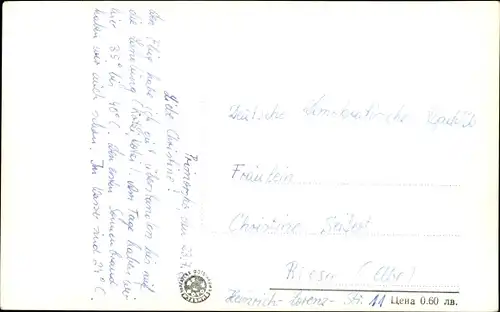 Primorsko, den 23.7.
Liebe Christine!
Den Flug habe ich gut überstanden bis auf
die Landung
Am Tage haben wir
hier 35° bis 40°C. Den ersten Sonnenbrand
haben wir auch schon. Im Wasser sind 24°C.
Deutsche Demokratische Republik
Fräulein
Christine Seifert
Riesa (Elbe)
Heinrich-Lorenz-Str. 11
Цена 0.60 лв.